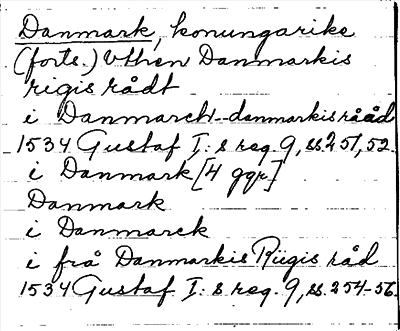 Danmark, konungarike
(forts.) Vthen Danmarkis
rigis rådt
i Danmarck - danmarkis rååd
1534 Gustaf I:s reg. 9, ss 251, 52.
i Danmark [4 ggr]
Danmark
i Danmarck
i frå Danmarkis Riigis råd
1534 Gustaf I:s reg. 9, ss. 254-56.